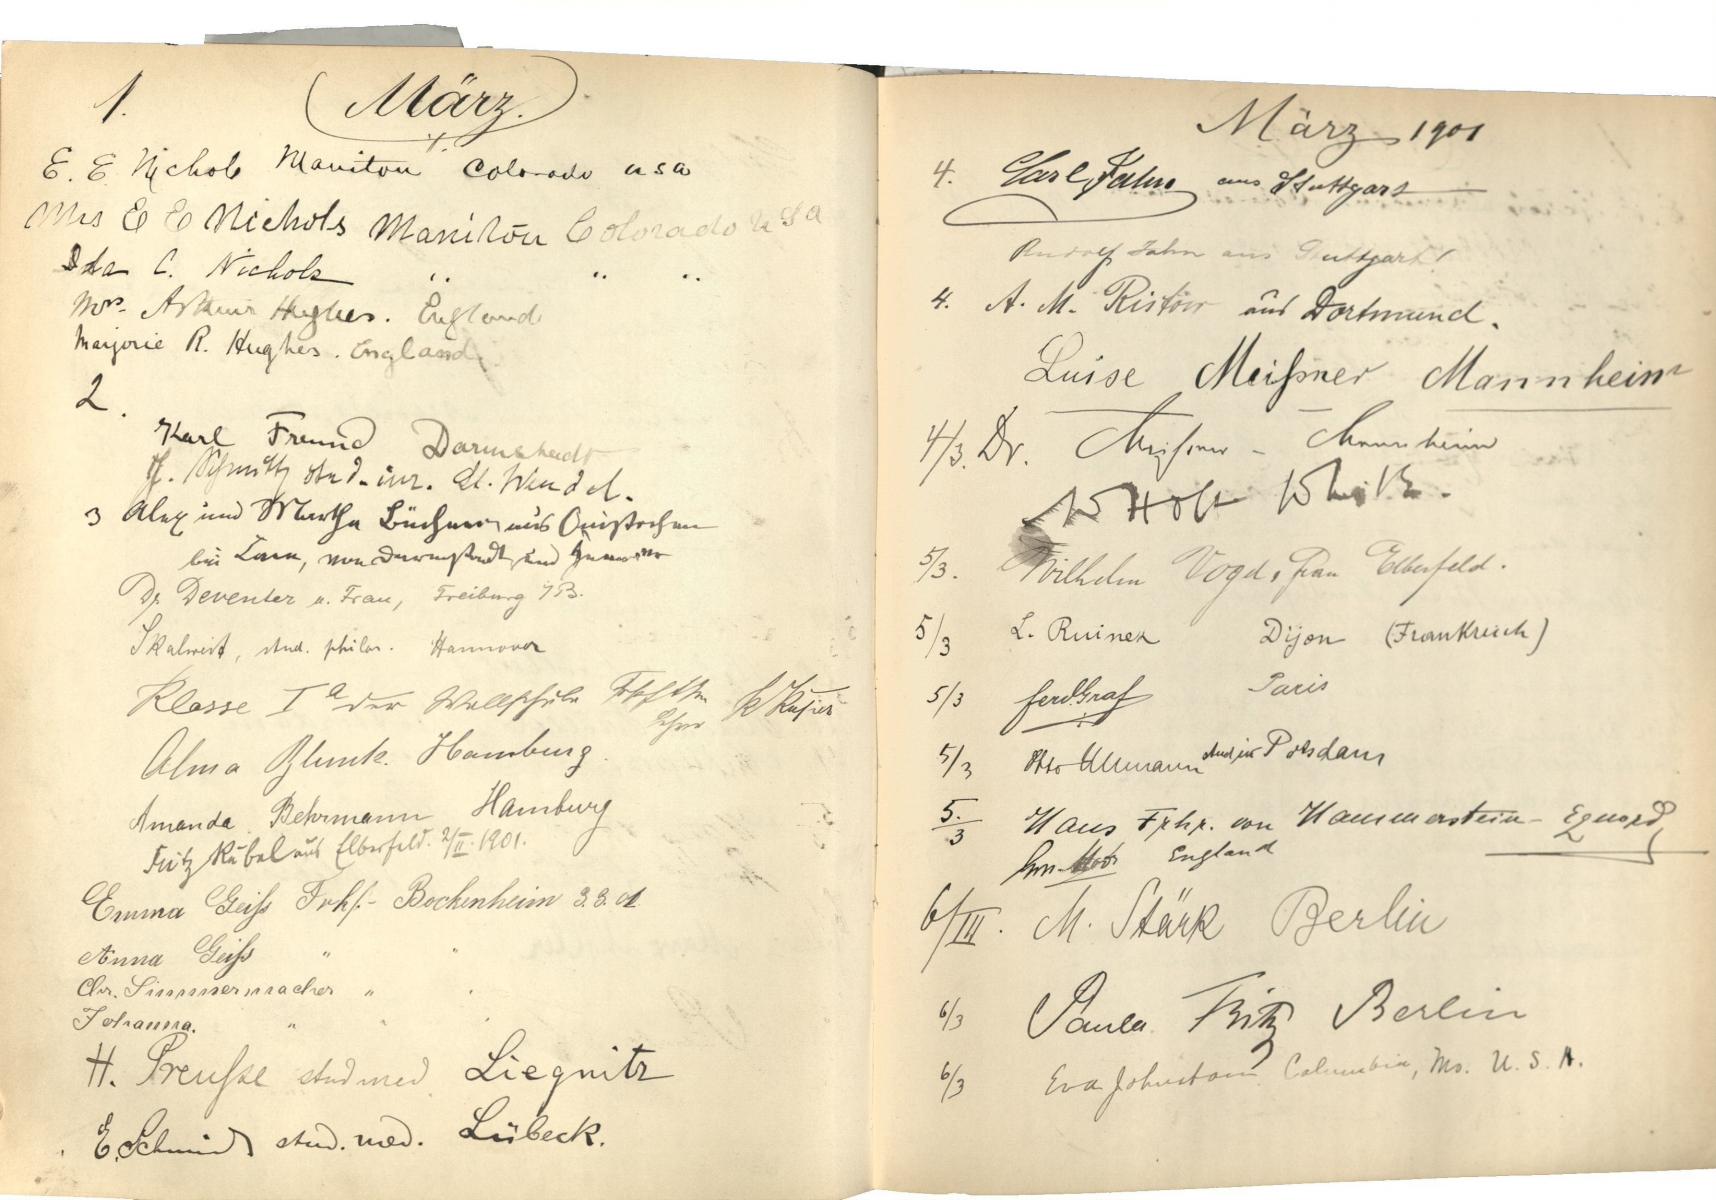 1. März.
E. E. Nichols Maniton Colorado usa
Mrs E E Nichols Maniton Colorado USa
Ida C. Nichols " " "
Mrs. Arthur Hughes. England
Marjorie R. Hughes. England
2.
Karl Freund Darmstadt
Schmitz stud. iur. St. Wendel.
3 Alex und Martha Büchner aus
bei von Darmstadt und
Dr. Deventer u. Frau, Freiburg i/B.
Skalweit, stud. philos. Hannover
Klasse Ia der Wallschule
Alma Blunk. Hamburg.
Amanda Behrmann Hamburg
Fritz Kübel aus Elberfeld. 2/II. 1901.
Emma Geiß Frkf.- Bockenheim 3.3.01
Anna Geiß " "
Chr. Simmermacher "
Johanna. "
H. Preuße stud med Liegnitz
E. Schmidt stud. med. Lübeck.
März 1901
4. Carl Jahn aus Stuttgart
Rudolf Jahn aus Stuttgart!
4. A. M. Ristow aus Dortmund.
Luise Meißner Mannheim
4/3. Dr. Meißner - Mannheim
W Holt
5/3. Wilhelm Vogd, Frau Elberfeld.
5/3 L. Ruinet Dijon (Frankreich)
5/3 Ferd. Graf Paris
5/3 Otto Ullmann stud. iur. Potsdam
5./3 Hans Frhr. von Hammerstein- Equord,
England
6/III. M. Stärk Berlin
6/3 Paula Fritz Berlin
6/3 Eva Johnston Columbia, Mo. U. S. A.